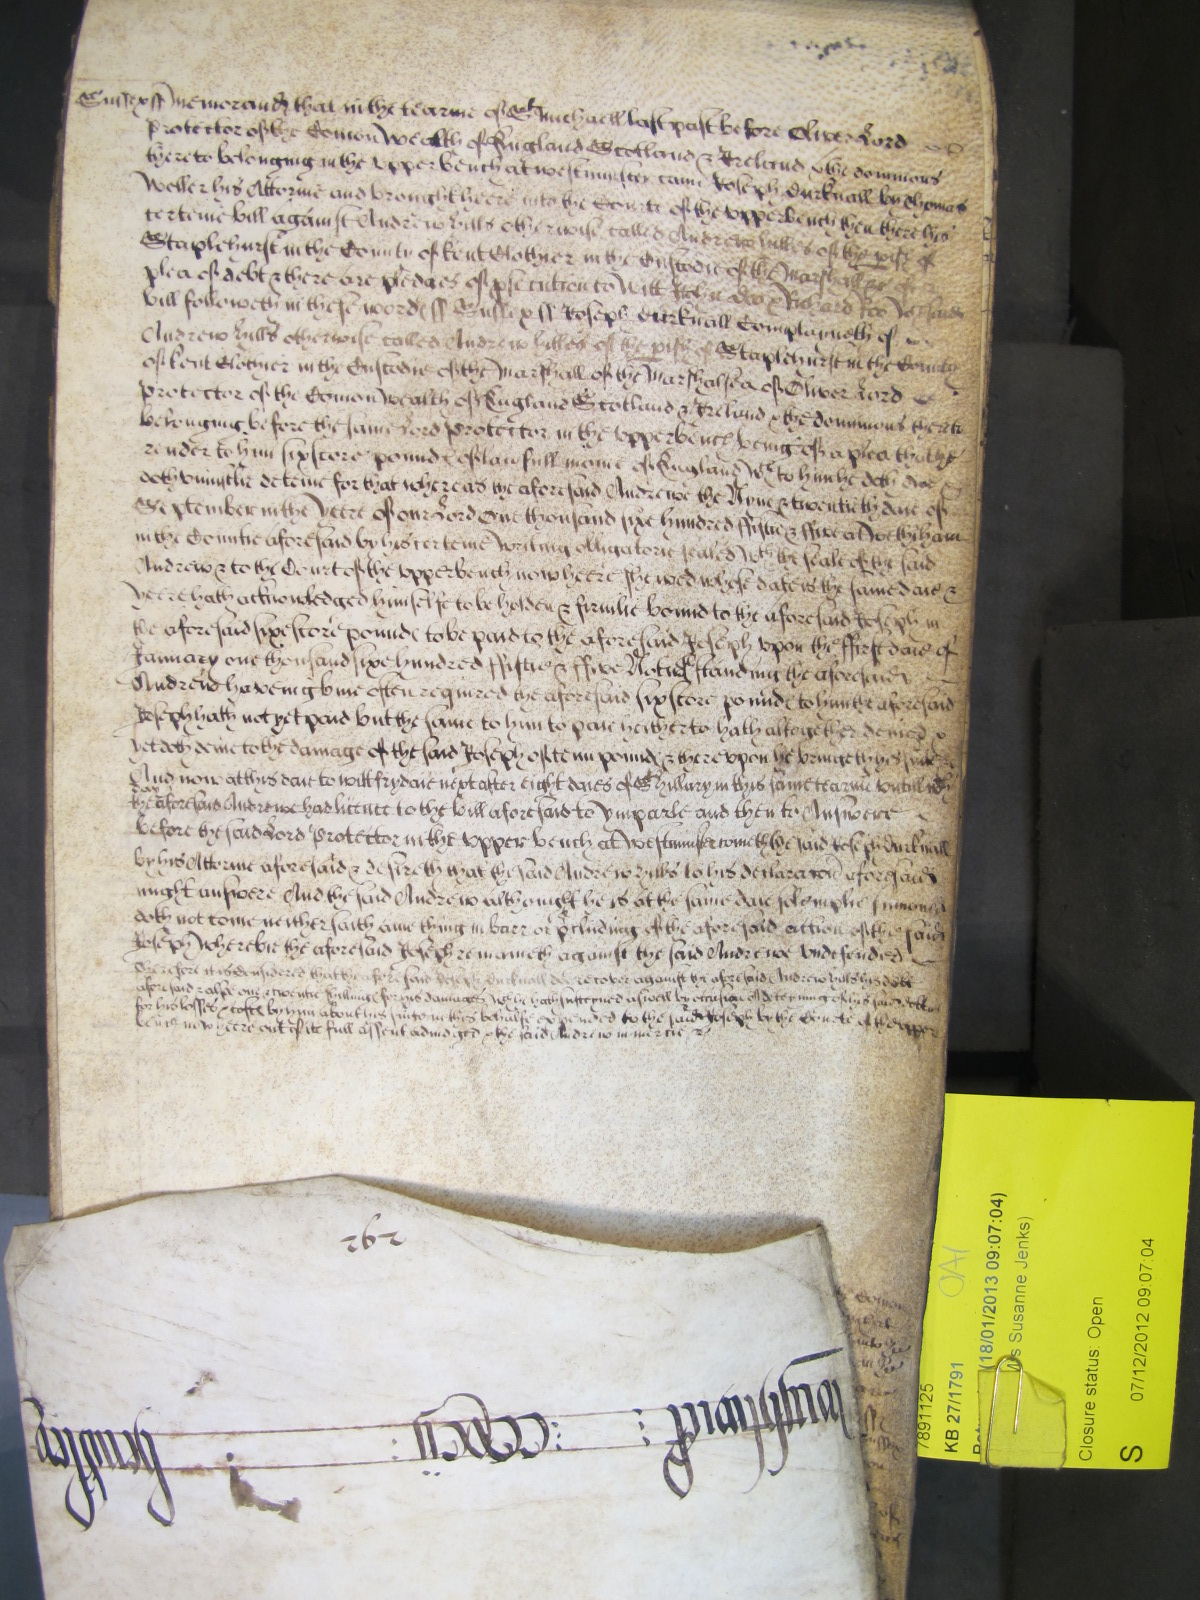 Sussex ss Memorand that in the tearme of St Michaell last past before Oliver Lord
Protector of the Comon Wealth of England Scotland & Ireland & the dominions
thereto belonging in the upper bench at westminster came Joseph Durknall by Thomas
Weller his Attornie and brought heere into the Courte of the upper bench then there his
certeine bill against Andrew Hills otherwise called Andrew Hilles of the pish of
Staplehurst in the County of Kent Clothier in the Custodie of the Marshall &c of
plea of debt & there are pledges of psecution to witt John Doo & Richard Roo
bill followeth in these words ss Sussex ss Joseph Durknall Complayneth of
Andrew Hills otherwise called Andrew Hilles of the pish of Staplehurst in the County
of Kent Clothier in the Custodie of the Marshall of the Marshalsea of Oliver Lord
Protector of the Comon Wealth of England Scotland & Ireland & the dominions thereto
belonging before the same Lord Protector in the upper bench being of a plea that he
render to him six score pounds of lawfull monie of England wch to him he doth owe &
doth uniustlie deteine for that whereas the aforesaid Andrewe the Nyne & twentith daie of
September in the Yeere of our Lord One thousand sixe hundred ffiftie & ffive at Wethiham
in the Countie aforesaid by his certeine writing obligatorie sealed wth the seale of the said
Andrew & to the Court of the upper bench now heere shewed whose date is the same daie &
yeere hath acknowledged himselfe to be holden & firmlie bound to the aforesaid Joseph in
the aforesaid sixe score pounds to be paid to the aforesaid Joseph upon the ffirst daie of
January one thousand sixe hundred ffiftie & ffive Notwthstanding the aforesaid
Andrew haveing bine often required the aforesaid six score pounds to him the aforesaid
Joseph hath not yet paid but the same to him to paie hitherto hath altogether denied &
yet doth denie to the damage of the said Joseph of tenn pounds & there upon he bringeth his suite &c
And now at this daie to witt frydaie next after eight daies of St Hillary in this same tearme until wch
day the aforesaid Andrewe had licence to the bill aforesaid to ymparle and then to Answere
before the said Lord Protector in the upper bench at Westminster cometh the said Joseph Durknall
by his Attornie aforesaid & desireth that the said Andrew Hills to his declaracon aforesaid
might answere And the said Andrew althought he is at the same daie solemplie sumoned
doth not come neither saith anie thing in barr or pcluding of the aforesaid action of the said
Joseph Wherebie the aforesaid Joseph remaineth against the said Andrewe Undefended
Therefore it is considered that the aforesaid Joseph Durknall doe recover against the aforesaid Andrew Hills his debt
aforesaid & alsoe one & twentie shillings for his damages wch he hath susteined aswell by occasion of deteyning of his said debt
for his losses & costs by him about his suite in this behalfe expended to the said Joseph by the Courte of the upper
bench now heere out of its full assent adiudged & the said Andrew in mercie &c
262
7891125
KB 27/1791
(18/01/2013 09:07:04)
s Susanne Jenks)
Closure status: Open
S
07/12/2012 09:07:04